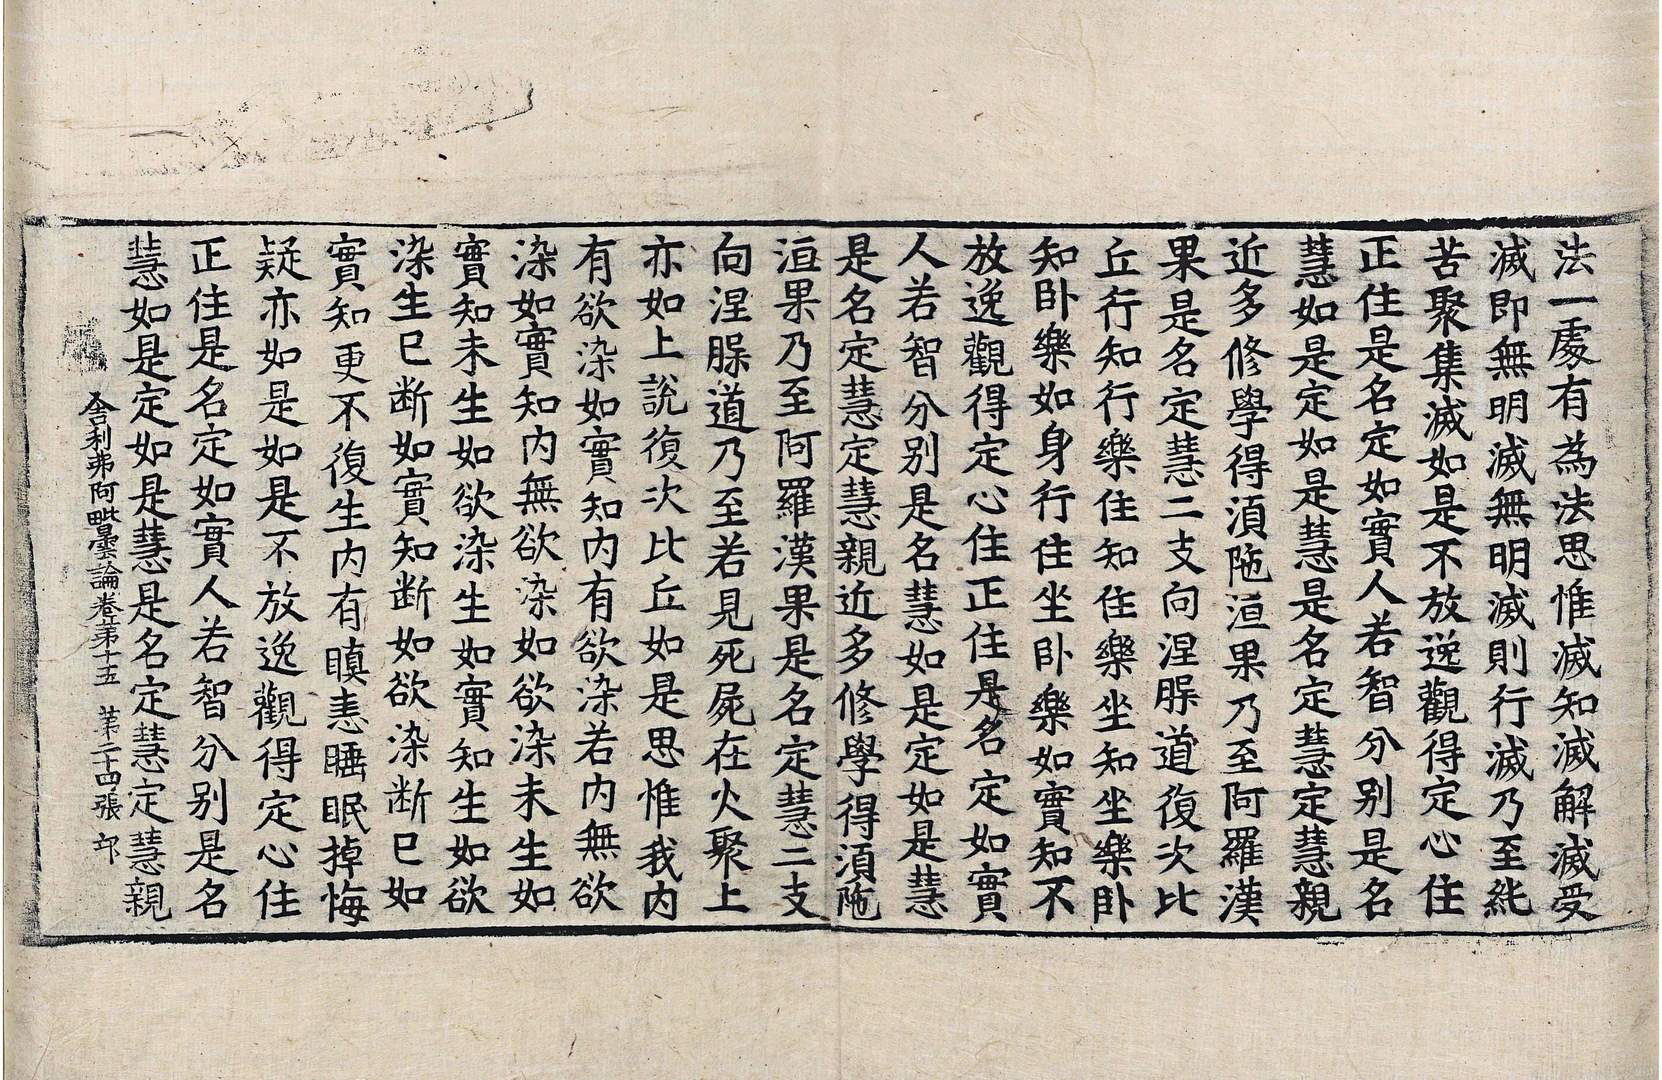 法一處有為法思惟滅知滅解滅受
滅即無明滅無明滅則行滅乃至純
苦聚集滅如是不放逸觀得定心住
正住是名定如實人若智分別是名
慧如是定如是慧是名定慧定慧親
近多修學得湏陁洹果乃至阿羅漢
果是名定慧二支向涅槃道復次比
丘行知行樂住知住樂坐知坐樂卧
知卧樂如身行住坐卧樂如實知不
放逸觀得定心住正住是名定如實
人若智分別是名慧如是定如是慧
是名定慧定慧親近多修學得湏陁
洹果乃至阿羅漢果是名定慧二支
向涅槃道乃至若見死屍在火聚上
亦如上說復次比丘如是思惟我內
有欲染如實知內有欲染若內無欲
染如實知內無欲染如欲染未生如
實知未生如欲染生如實知生如欲
染生已断如實知断如欲染断已如
實知更不復生內有瞋恚睡眠掉悔
疑亦如是如是不放逸觀得定心住
正住是名定如實人若智分別是名
慧如是定如是慧是名定慧定慧親
舍利弗阿毗曇論卷第十五 第二十四張 邙